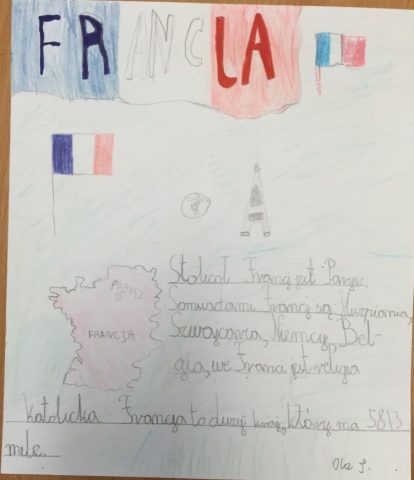 FRANCJA
PARYŻ
FRANCJA
Stolicą Francji jest Paryż.
Sąsiadami Francji są Hiszpania,
Szwajcaria, Niemcy, Bel-
gia, we Francji jest religia
katolicka Francja to duży kraj, który ma 5813
mile.
Ola J.